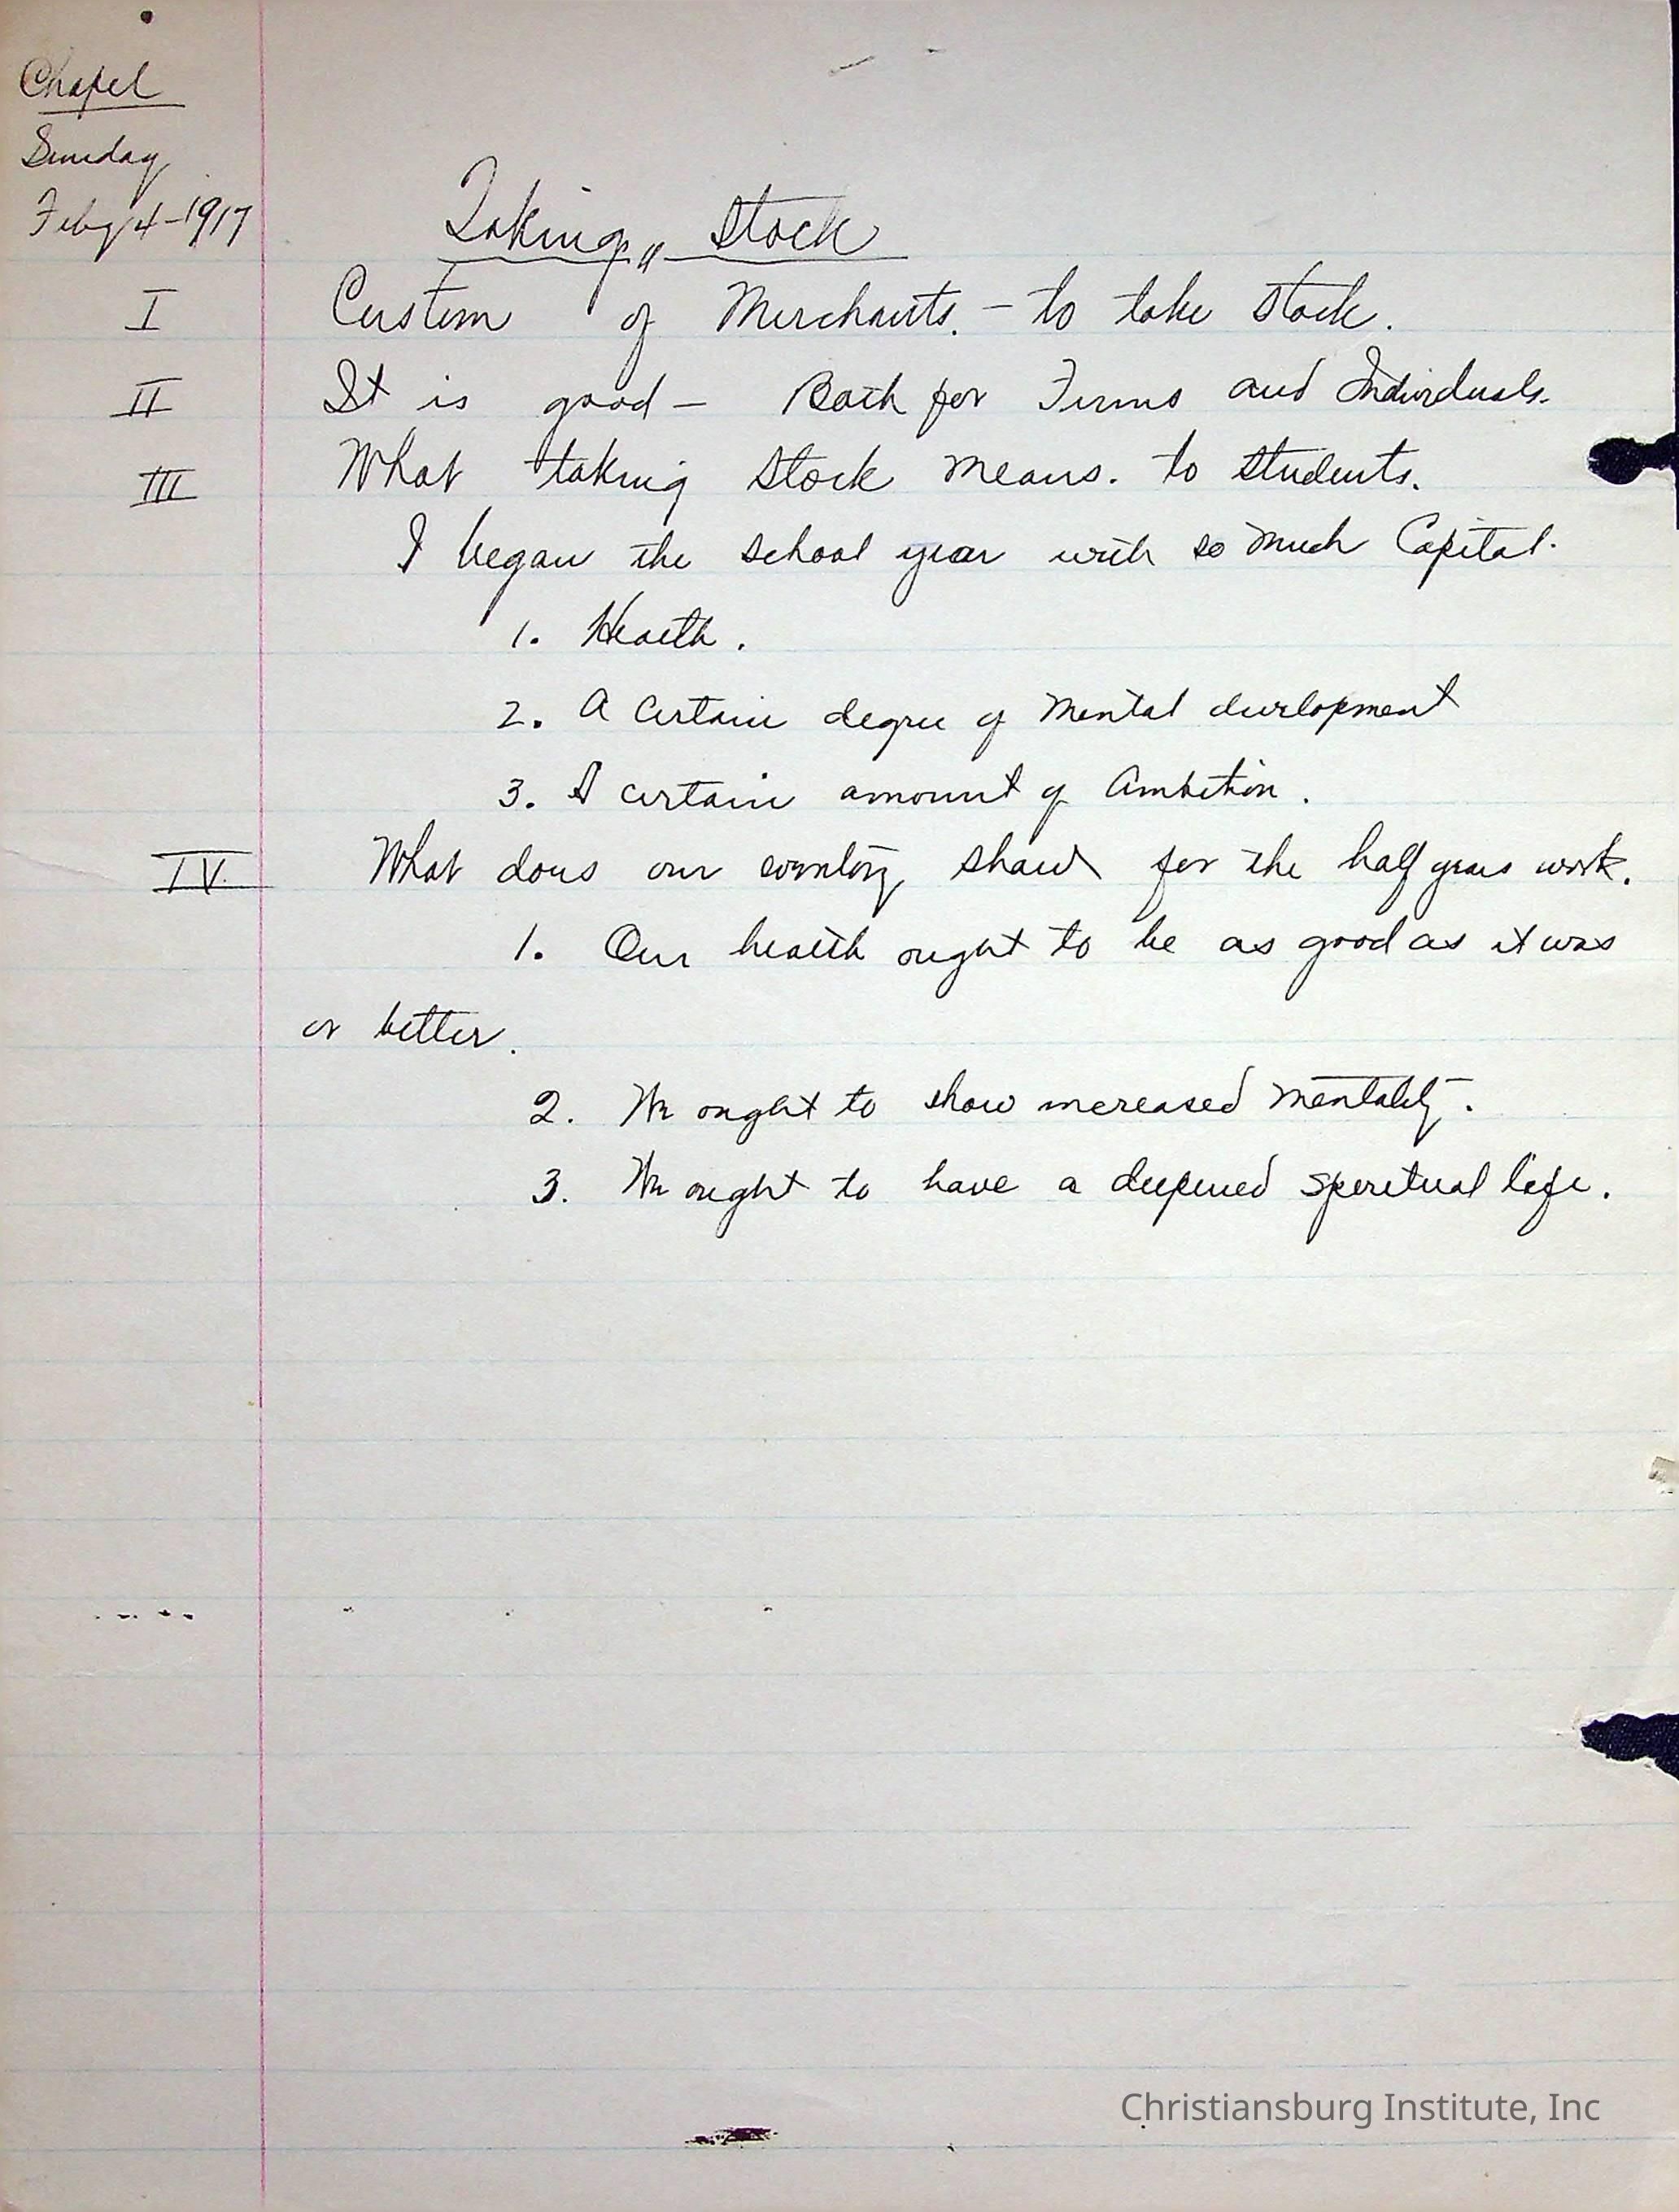 Chapel
Sunday
Feby 4-1917
Taking Stock
I Custom of Merchants. - to take stock.
II It is good - Both for Firms and Individuals.
III What taking stock means. to students.
I began the school year with so much Capital.
1. Health.
2. A certain degree of mental development
3. A certain amount of Ambition.
IV. What does our show for the half years work.
1. Our health ought to be as good as it was
or better.
2. We ought to show increased mentality.
3. We ought to have a deepened speretual life.
Christiansburg Institute, Inc